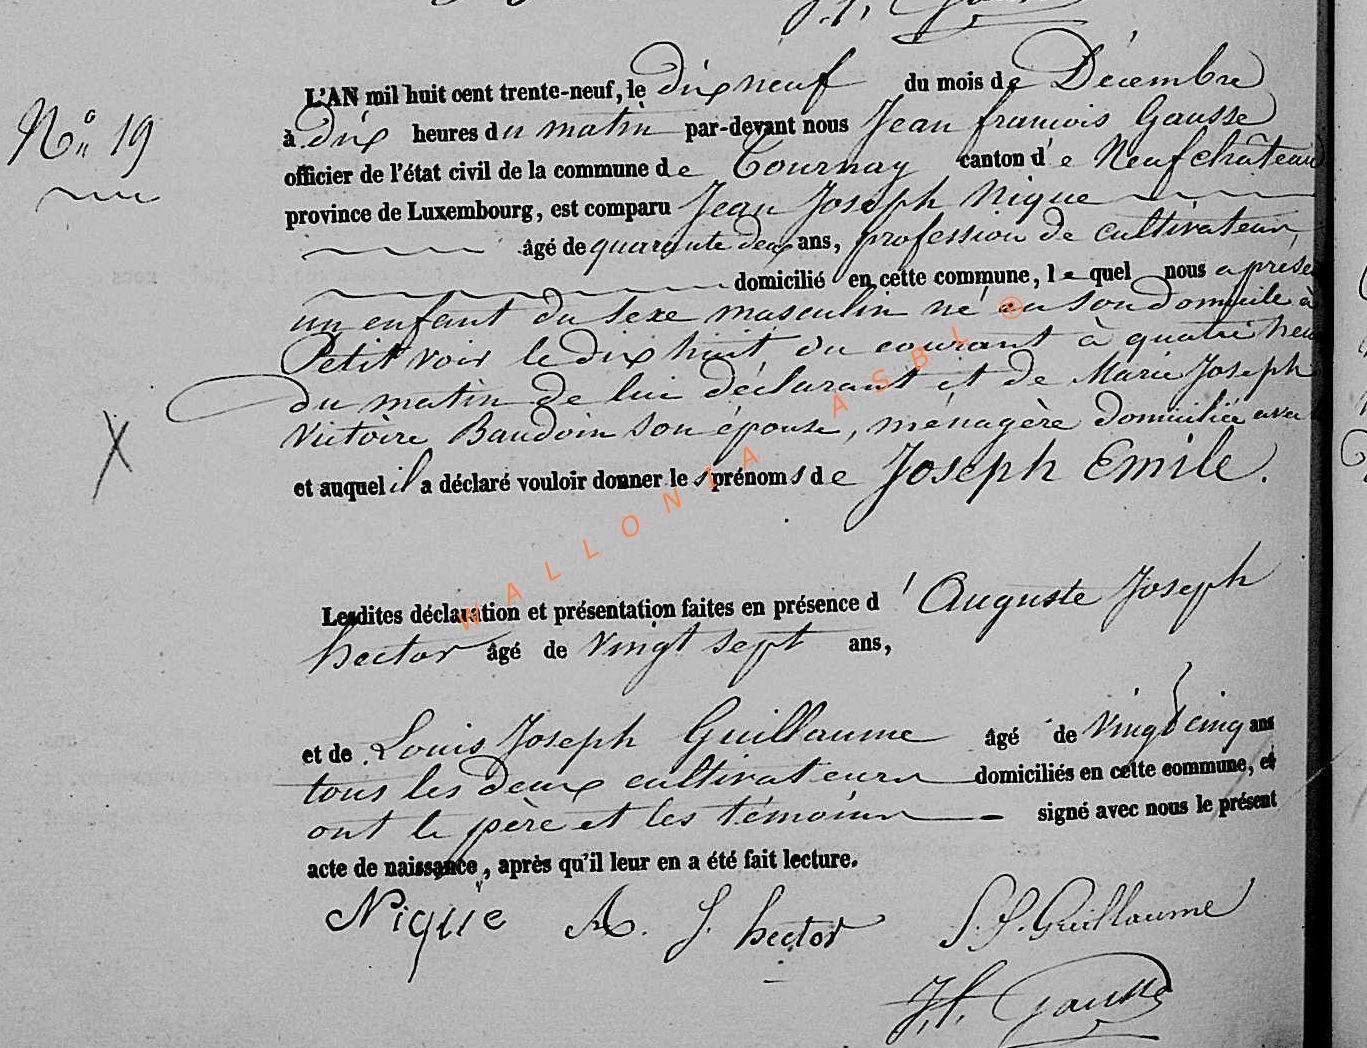 N° 19
L'AN mil huit cent trente-neuf, le dix neuf du mois de Décembre
à dix heures du matin par-devant nous Jean francois Gausse
officier de l'état civil de la commune de Tournay canton d'e Neufchâteau
province de Luxembourg, est comparu Jean Joseph Nique
âgé de quarante deux ans, profession de cultivateur,
domicilié en cette commune, le quel nous a prése
un enfant du sexe masculin né en son domicile à
Petit voir le dix huit du courant à quatre heu
du matin de lui déclarant et de Marie Joseph
Victoire Baudoin son épouse, ménagère domiciliée avec
et auquel il a déclaré vouloir donner les prénoms de Joseph Emile.
Lesdites déclaration et présentation faites en présence d'Auguste Joseph
hector âgé de vingt sept ans,
et de Louis Joseph Guillaume âgé de vingt cinq ans
tous les deux cultivateurs domiciliés en cette commune, et
ont le père et les témoins signé avec nous le présent
acte de naissance, après qu'il leur en a été fait lecture.
Nique A. J. hector L. J. Guillaume
J. f. Gausse
WALLONIA ASBL ©